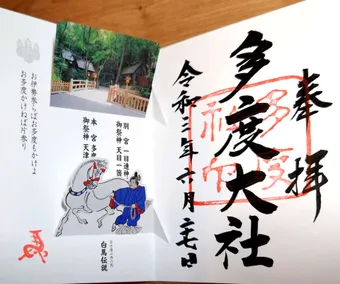 奉拝
多度大社
令和三年六月二七日
別宮 一目連神
御祭神 天目一箇
本宮 多度
御祭神 天津
白馬伝説
お伊勢参らばお多度もかけよ
お多度かけねば片参り